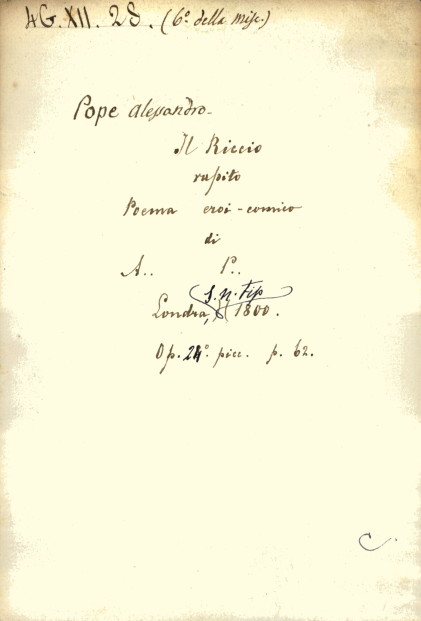 4G. XII. 28. (6º della misc.)
Pope Alessandro-
Il Riccio
rapito
Poema eroi-comico
di
A.. P..
S. n. tip
Londra, 1800.
Op. 24º. picc. p. 62.
C.